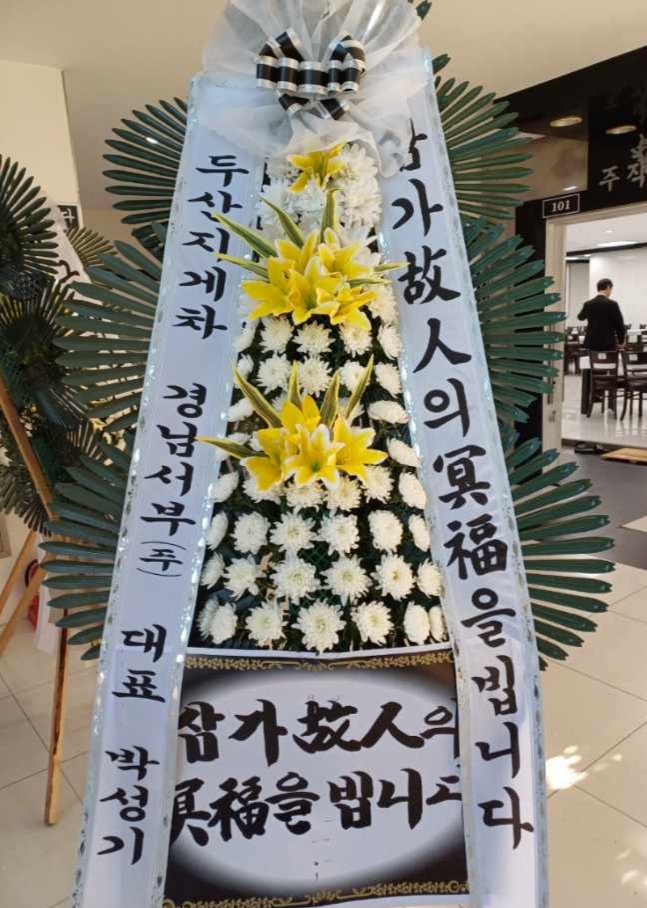 두산지게차 경남서부(주) 대표 박성기
삼가故人의冥福을빕니다
삼가故人의
冥福을빕니다
101
주